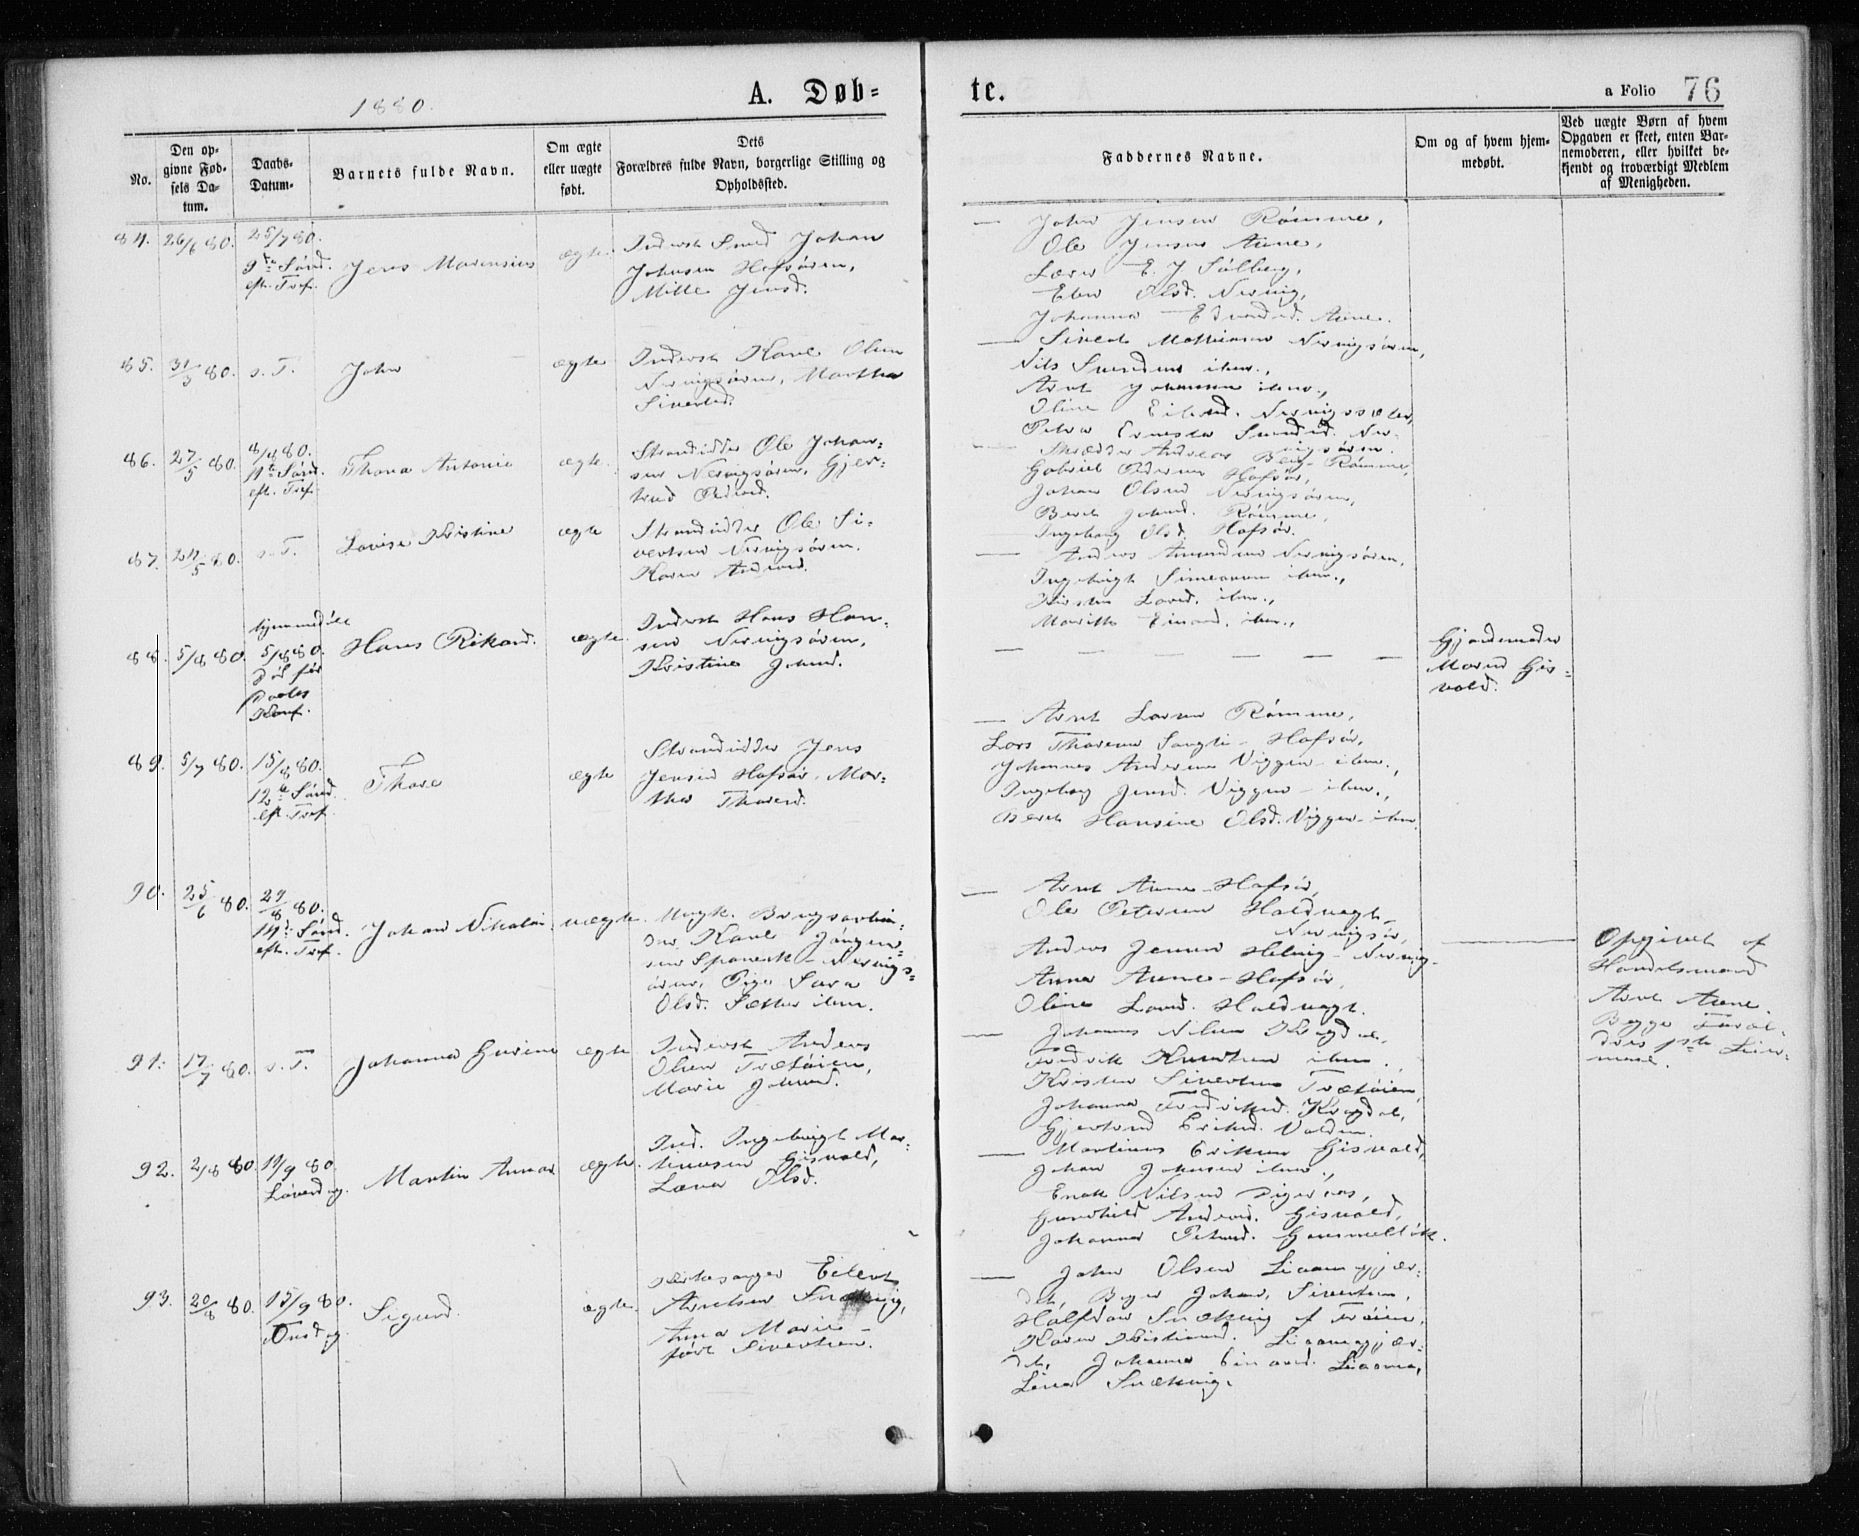 1880.
A. Døb-
te.
a Folio 76
No.
Den op-
givne Fød-
sels Da-
tum.
Daabs-
Datum.
Barnets fulde Navn.
Om ægte
eller uægte
født.
Dets
Forældres fulde Navn, borgerlige Stilling og
Opholdssted.
Faddernes Navne.
Om og af hvem hjem-
medøbt.
Ved uægte Børn af hvem
Opgaven er skeet, enten Bar-
nemoderen, eller hvilket be-
kjendt og troværdigt Medlem
af Menigheden.
84. 26/6 80.
25/7 80.
9de Sønd.
eft. Tref.
Jens Marensius
ægte.
Inderst Smed Johan
Johnsen Hofsøren,
Mille Jensd.
— John Jensen Rømme,
Ole Jensen Aune,
Lærer E. J. Solberg,
Elen Olsd. Nervig,
Johanna Edvardsd. Aune.
85. 31/5 80. s. T.
John
ægte
Inderst Karl Olsen
Nervigsøren, Martha
Sivertsd.
— Sivert Mathiasen Nervigsøren,
Nils Svendsen ibm.,
Arnt Johansen ibm.,
Oline Eilersd. Nervigssæter,
Petra Ernesta Svendsd. Ner-
vigsøren.
86. 27/5 80.
8/8 80.
11te Sønd.
eft. Tref.
Thona Antonie
ægte.
Strandsidder Ole Johan-
sen Nervigsøren, Gjer-
trud Pedersd.
— Skrædder Andreas Berg-Rømme,
Gabriel Pedersen Hofsør,
Johan Olsen Nervigsøren,
Berit Johnsd. Rømme,
Ingeborg Olsd. Hofsør.
87. 24/5 80. s. T.
Lovise Kristine
ægte
Strandsidder Ole Si-
vertsen Nervigsøren.
Karen Andersd.
— Anders Amundsen Nervigsøren,
Ingebrigt Simeonsen ibm.,
Kirsten Larsd. ibm.,
Marith Einarsd. ibm.,
88. 5/8 80.
hjemmedøbt
5/8 80.
død før
Daabs
Konf.
Hans Rikard.
ægte.
Inderst Hans Han-
sen Nervigsøren,
Kristine Johnsd.
— — — — — —
Gjordemoder
Maren Gis-
vold.
89. 5/7 80.
15/8 80.
12te Sønd.
eft. Tref.
Thore
ægte
Strandsidder Jens
Jensen Hofsør, Mar-
tha Thoresd.
— Arnt Larsen Rømme,
Lars Thoresen Sangli-Hofsør,
Johannes Andersen Viggen-ibm.,
Ingeborg Jensd. Viggen-ibm.,
Berit Hansine Olsd. Viggen-ibm.
90. 25/6 80.
29/8 80.
14de Sønd.
eft. Tref.
Johan Nikolai
uægte.
Ungk. Brugsarbei-
der Karl Jørgen-
sen Spanesk-Nervigs-
øren, Pige Sara
Olsd. Sætter ibm.
— Arnt Aune-Hofsør,
Ole Petersen Holdvagt-
Nervigsør,
Anders Jensen Helvig-Nervig-
Anna Aune-Hofsør,
Oline Larsd. Holdvagt.
Opgivet af
Handelsmand
Arnt Aune.
Begge Foræl-
dres 1ste Leier-
maal.
91. 17/7 80. s. T.
Johanna Gurine
ægte
Inderst Anders
Olsen Trætøien,
Marie Johnsd.
— Johannes Nilsen Krogdal,
Fredrik Knudsen ibm.,
Kristen Sivertsen Trætøien,
Johanna Fredriksd. Krogdal,
Gjertrud Eriksd. Volden.
92. 2/8 80.
11/9 80.
Løverdag.
Martin Annar
ægte.
Ind. Ingebrigt Mar-
tinusen Gisvold,
Lærea Olsd.
— Martinus Eriksen Gisvold,
Johan Johnsen ibm.,
Enok Nilsen Digeraas,
Gunhild Andersd. Gisvold,
Johanna Petersd. Gammeltøk.
93. 20/8 80.
15/9 80.
Onsdag.
Sigurd.
ægte.
Kirkesanger Eilert
Arntsen Snækvig,
Anna Marie
født Sivertsen.
— John Olsen Liaamgjær-
det, Beger Johan. Sivertsen,
Halfdan Snækvig af Trøien,
Karen Kristiansd. Liaamgjær-
det, Johanna Einarsd. Liaamo,
Lina Snækvig.